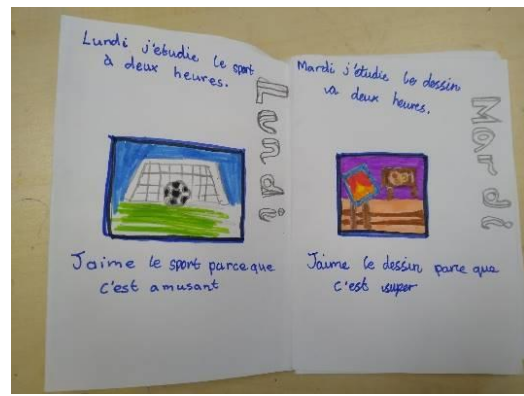 Lundi j'étudie le sport
à deux heures.
Lundi
J'aime le sport parce que
c'est amusant
Mardi j'étudie le dessin
à deux heures.
Mardi
J'aime le dessin parce que
c'est super